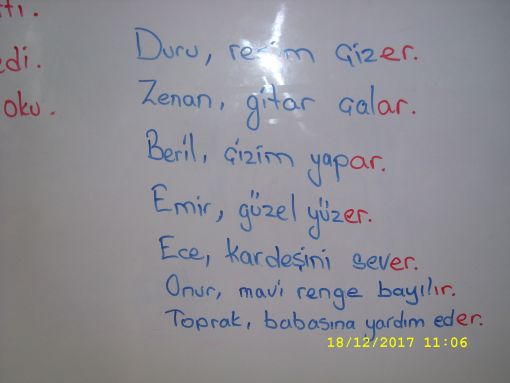 tı.
edi.
oku.
Duru, resim çizer.
Zenan, gitar çalar.
Beril, çizim yapar.
Emir, güzel yüzer.
Ece, kardeşini sever.
Onur, mavi renge bayılır.
Toprak, babasına yardım eder.
18/12/2017 11:06